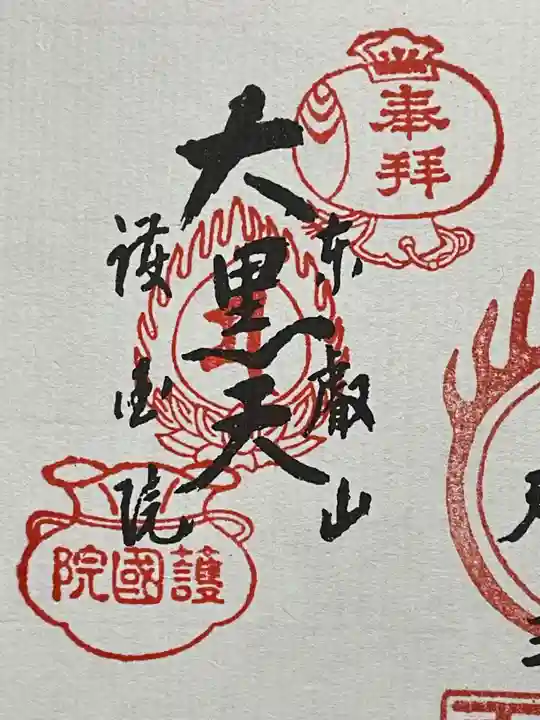 奉拝
東叡山
大黒天
護国院
院國護